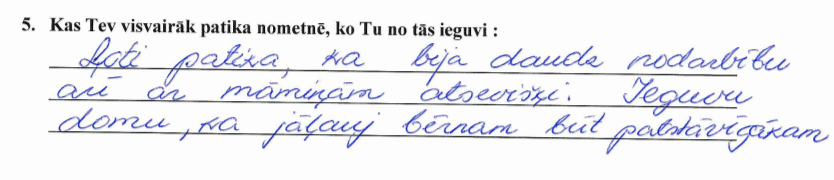 5. Kas Tev visvairāk patika nometnē, ko Tu no tās ieguvi :
Ļoti patika, ka bija daudz nodarbību
arī ar māmiņām atsevišķi. Ieguvu
domu, ka jāļauj bērnam būt patstāvīgākam